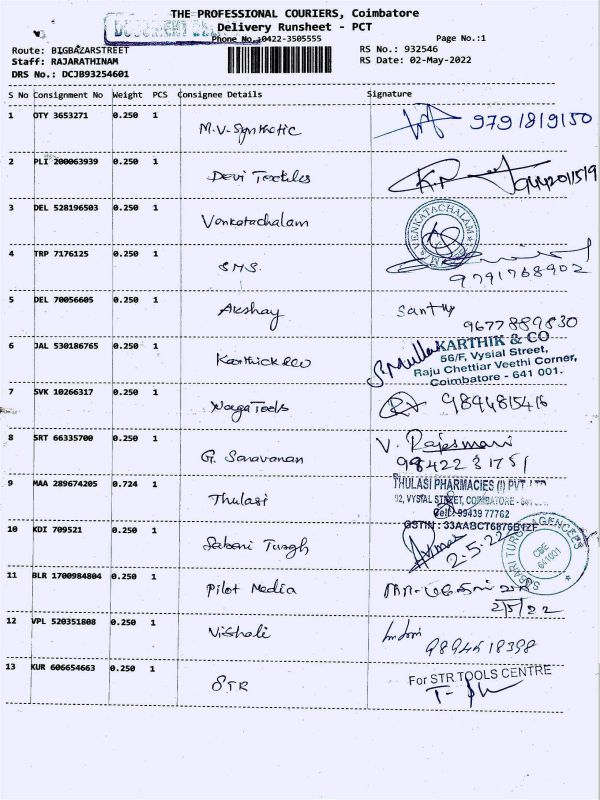 THE PROFESSIONAL COURIERS, Coimbatore
Delivery Runsheet - PCT
Phone No.:0422-3505555
Page No.:1
Route: BIGBAZARSTREET
RS No.: 932546
Staff: RAJARATHINAM
RS Date: 02-May-2022
DRS No.: DCJB93254601
S No Consignment No Weight PCS Consignee Details Signature
1 OTY 3653271 0.250 1 M.V-Synthetic 9791819150
2 PLI 200063939 0.250 1 Devi Textiles
3 DEL 528196503 0.250 1 Venkatachalam VENKATACHALAM
4 TRP 7176125 0.250 1 SMS. 9791768902
5 DEL 70056605 0.250 1 Akshay 9677889830
6 JAL 530186765 0.250 1 Karthick &co
KARTHIK & CO
56/F, Vysial Street,
Raju Chettiar Veethi Corner,
Coimbatore - 641 001.
7 SVK 10266317 0.250 1 Naga Tools 9894815416
8 SRT 66335700 0.250 1 G. Saravanan V. Rajesmari
9842231751
9 MAA 289674205 0.724 1 Thulasi
THULASI PHARMACIES (I) PVT LTD
52, VYSIAL STREET, COIMBATORE -
Cell: 99439 77762
GSTIN : 33AABCT6876B1ZF
10 KDI 709521 0.250 1 Sabari 2-5-22
CBE
641001
11 BLR 1700984804 0.250 1 Pilot Media
2/5/22
12 VPL 520351808 0.250 1 Vishali
9894618398
13 KUR 606654663 0.250 1 STR
For STR TOOLS CENTRE